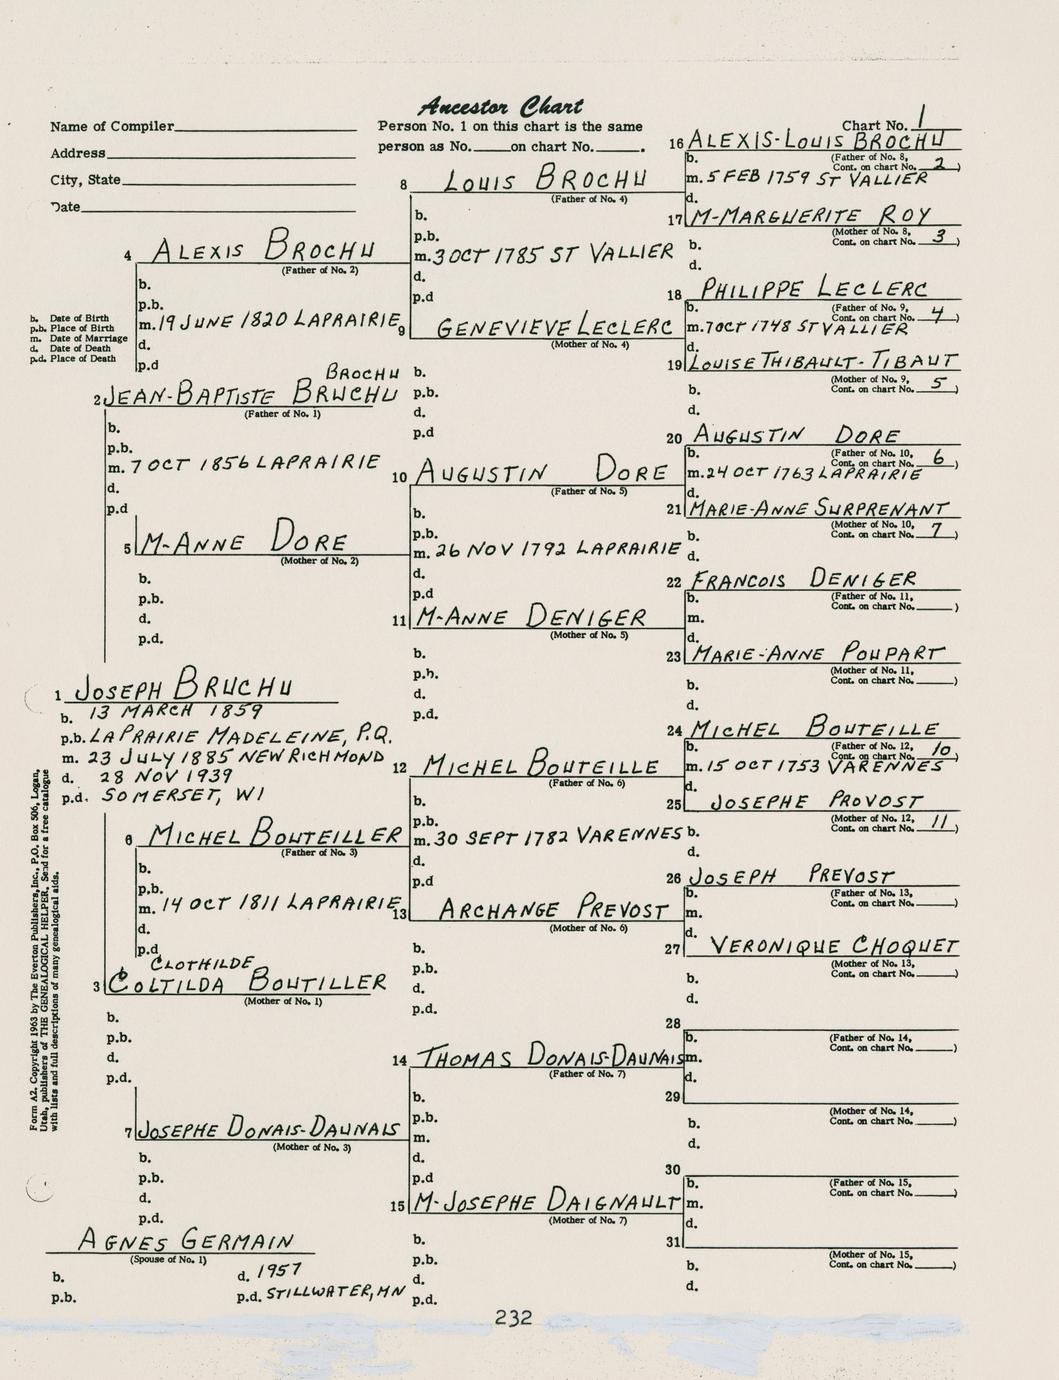 Ancestor Chart
Name of Compiler
Address
City, State
Date
Person No. 1 on this chart is the same
person as No. on chart No. .
Chart No. 1
16 ALEXIS-LOUIS BROCHU
(Father of No. 8,
Cont. on chart No. 2)
b.
m. 5 FEB 1759 ST VALLIER
d.
8 LOUIS BROCHU
(Father of No. 4)
b.
p.b.
m. 3 OCT 1785 ST VALLIER
d.
p.d
17 M-MARGUERITE ROY
(Mother of No. 8,
Cont. on chart No. 3)
b.
d.
4 ALEXIS BROCHU
(Father of No. 2)
b.
p.b.
m. 19 JUNE 1820 LAPRAIRIE
d.
p.d
18 PHILIPPE LECLERC
(Father of No. 9,
Cont. on chart No. 4)
b.
m. 7 OCT 1748 ST VALLIER
d.
9 GENEVIEVE LECLERC
(Mother of No. 4)
b.
p.b.
d.
p.d
19 LOUISE THIBAULT-TIBAUT
(Mother of No. 9,
Cont. on chart No. 5)
b.
d.
b. Date of Birth
p.b. Place of Birth
m. Date of Marriage
d. Date of Death
p.d. Place of Death
BROCHU
2 JEAN-BAPTISTE BRUCHU
(Father of No. 1)
b.
p.b.
m. 7 OCT 1856 LAPRAIRIE
d.
p.d
20 AUGUSTIN DORE
(Father of No. 10,
Cont. on chart No. 6)
b.
m. 24 OCT 1763 LAPRAIRIE
d.
10 AUGUSTIN DORE
(Father of No. 5)
b.
p.b.
m. 26 NOV 1792 LAPRAIRIE
d.
p.d
21 MARIE-ANNE SURPRENANT
(Mother of No. 10,
Cont. on chart No. 7)
b.
d.
5 M-ANNE DORE
(Mother of No. 2)
b.
p.b.
d.
p.d.
22 FRANCOIS DENIGER
(Father of No. 11,
Cont. on chart No. )
b.
m.
d.
11 M-ANNE DENIGER
(Mother of No. 5)
b.
p.b.
d.
p.d.
23 MARIE-ANNE POUPART
(Mother of No. 11,
Cont. on chart No. )
b.
d.
1 JOSEPH BRUCHU
b. 13 MARCH 1859
p.b. LA PRAIRIE MADELEINE, P.Q.
m. 23 JULY 1885 NEW RICHMOND
d. 28 NOV 1939
p.d. SOMERSET, WI
24 MICHEL BOUTEILLE
(Father of No. 12,
Cont. on chart No. 10)
b.
m. 15 OCT 1753 VARENNES
d.
12 MICHEL BOUTEILLE
(Father of No. 6)
b.
p.b.
m. 30 SEPT 1782 VARENNES
d.
p.d
25 JOSEPHE PROVOST
(Mother of No. 12,
Cont. on chart No. 11)
b.
d.
6 MICHEL BOUTEILLER
(Father of No. 3)
b.
p.b.
m. 14 OCT 1811 LAPRAIRIE
d.
p.d
26 JOSEPH PREVOST
(Father of No. 13,
Cont. on chart No. )
b.
m.
d.
13 ARCHANGE PREVOST
(Mother of No. 6)
b.
p.b.
d.
p.d.
27 VERONIQUE CHOQUET
(Mother of No. 13,
Cont. on chart No. )
b.
d.
CLOTHILDE
3 COLTILDA BOUTILLER
(Mother of No. 1)
b.
p.b.
d.
p.d.
28
(Father of No. 14,
Cont. on chart No. )
b.
m.
d.
14 THOMAS DONAIS-DAUNAIS
(Father of No. 7)
b.
p.b.
m.
d.
p.d
29
(Mother of No. 14,
Cont. on chart No. )
b.
d.
7 JOSEPHE DONAIS-DAUNAIS
(Mother of No. 3)
b.
p.b.
d.
p.d.
30
(Father of No. 15,
Cont. on chart No. )
b.
m.
d.
15 M-JOSEPHE DAIGNAULT
(Mother of No. 7)
b.
p.b.
d.
p.d.
31
(Mother of No. 15,
Cont. on chart No. )
b.
d.
AGNES GERMAIN
(Spouse of No. 1)
b.
p.b.
d. 1957
p.d. STILLWATER, MN
Form A2. Copyright 1963 by The Everton Publishers, Inc., P.O. Box 506, Logan,
Utah, publishers of THE GENEALOGICAL HELPER. Send for a free catalogue
with lists and full descriptions of many genealogical aids.
232